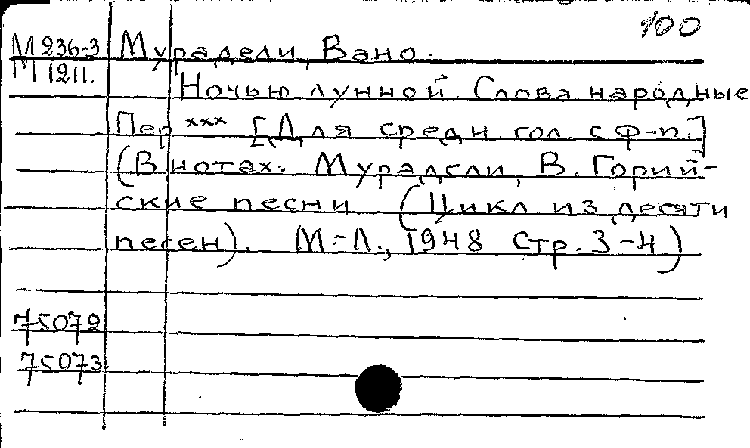 100
М 236-3 Мурадели, Вано.
М 1211.
Ночью лунной. Слова народные
Пер *** [Для средн. гол. с ф-п.]
(В нотах: Мурадели, В. Горий-
ские песни (Цикл из десяти
песен). М.-Л., 1948 Стр. 3-4)
75072
75073